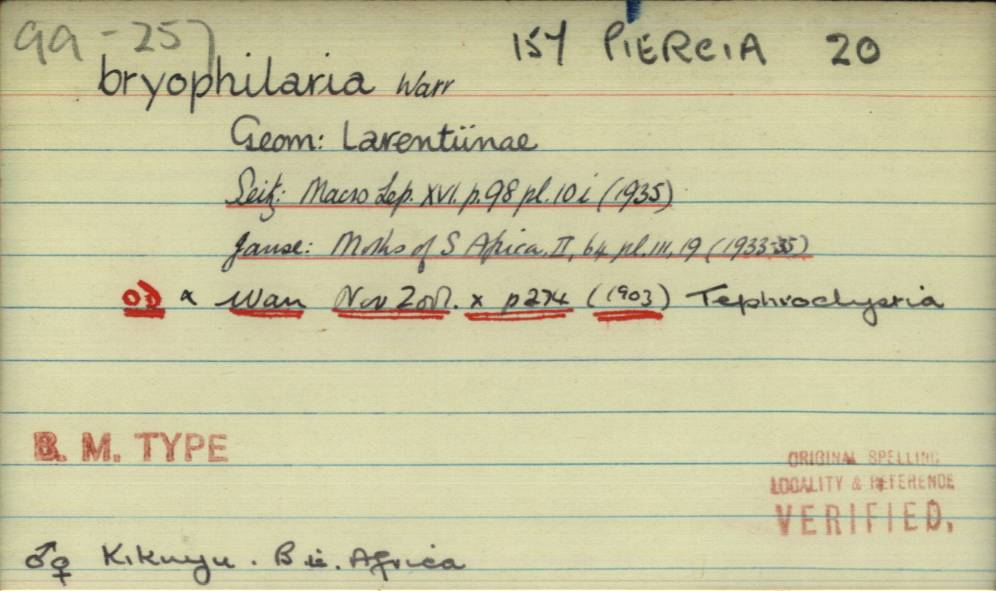 99-257 154 PIERCIA 20
bryophilaria Warr
Geom: Larentiinae
Seitz: Macro Lep. XVI. p.98 pl.10 i (1935)
Janse: Moths of S Africa, II, 64 pl.III, 19 (1933-35)
OD x Warr Nov Zool. x p274 (1903) Tephroclystia
B. M. TYPE
ORIGINAL SPELLING
LOCALITY & REFERENCE
VERIFIED.
♂♀ Kikuyu. B. E. Africa